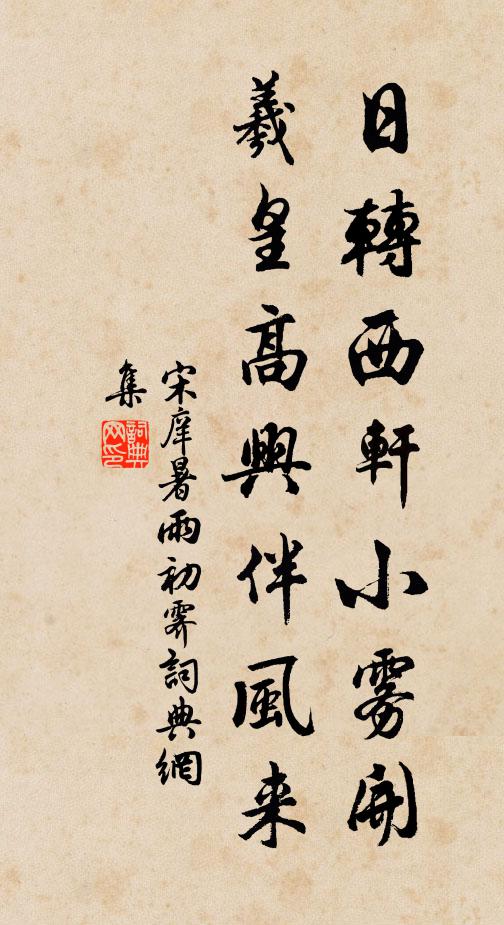 日轉西軒小雾開
羲皇高興伴風来
宋庠暑雨初霽詞典網
集
詞典网印